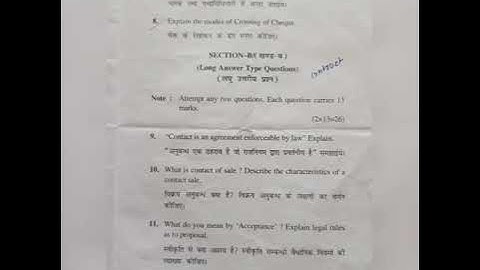 8. Explain the modes of Crossing of Cheque.
चेक के रेखांकन के ढंग स्पष्ट कीजिए।
SECTION-B/(खण्ड-ब)
(Long Answer Type Questions)
contract
(लघु उत्तरीय प्रश्न)
Note : Attempt any two questions. Each question carries 13
marks.
(2x13=26)
9. "Contact is an agreement enforceable by law" Explain.
"अनुबन्ध एक ठहराव है जो राजनियम द्वारा प्रवर्तनीय है" समझाइये।
10. What is contact of sale ? Describe the characteristics of a
contact sale.
विक्रय अनुबन्ध क्या है? विक्रय अनुबन्ध के लक्षणों का वर्णन
कीजिए।
11. What do you mean by 'Acceptance' ? Explain legal rules
as to proposal.
स्वीकृति से क्या आशय है? स्वीकृति सम्बन्धी वैधानिक नियमों की
व्याख्या कीजिए।